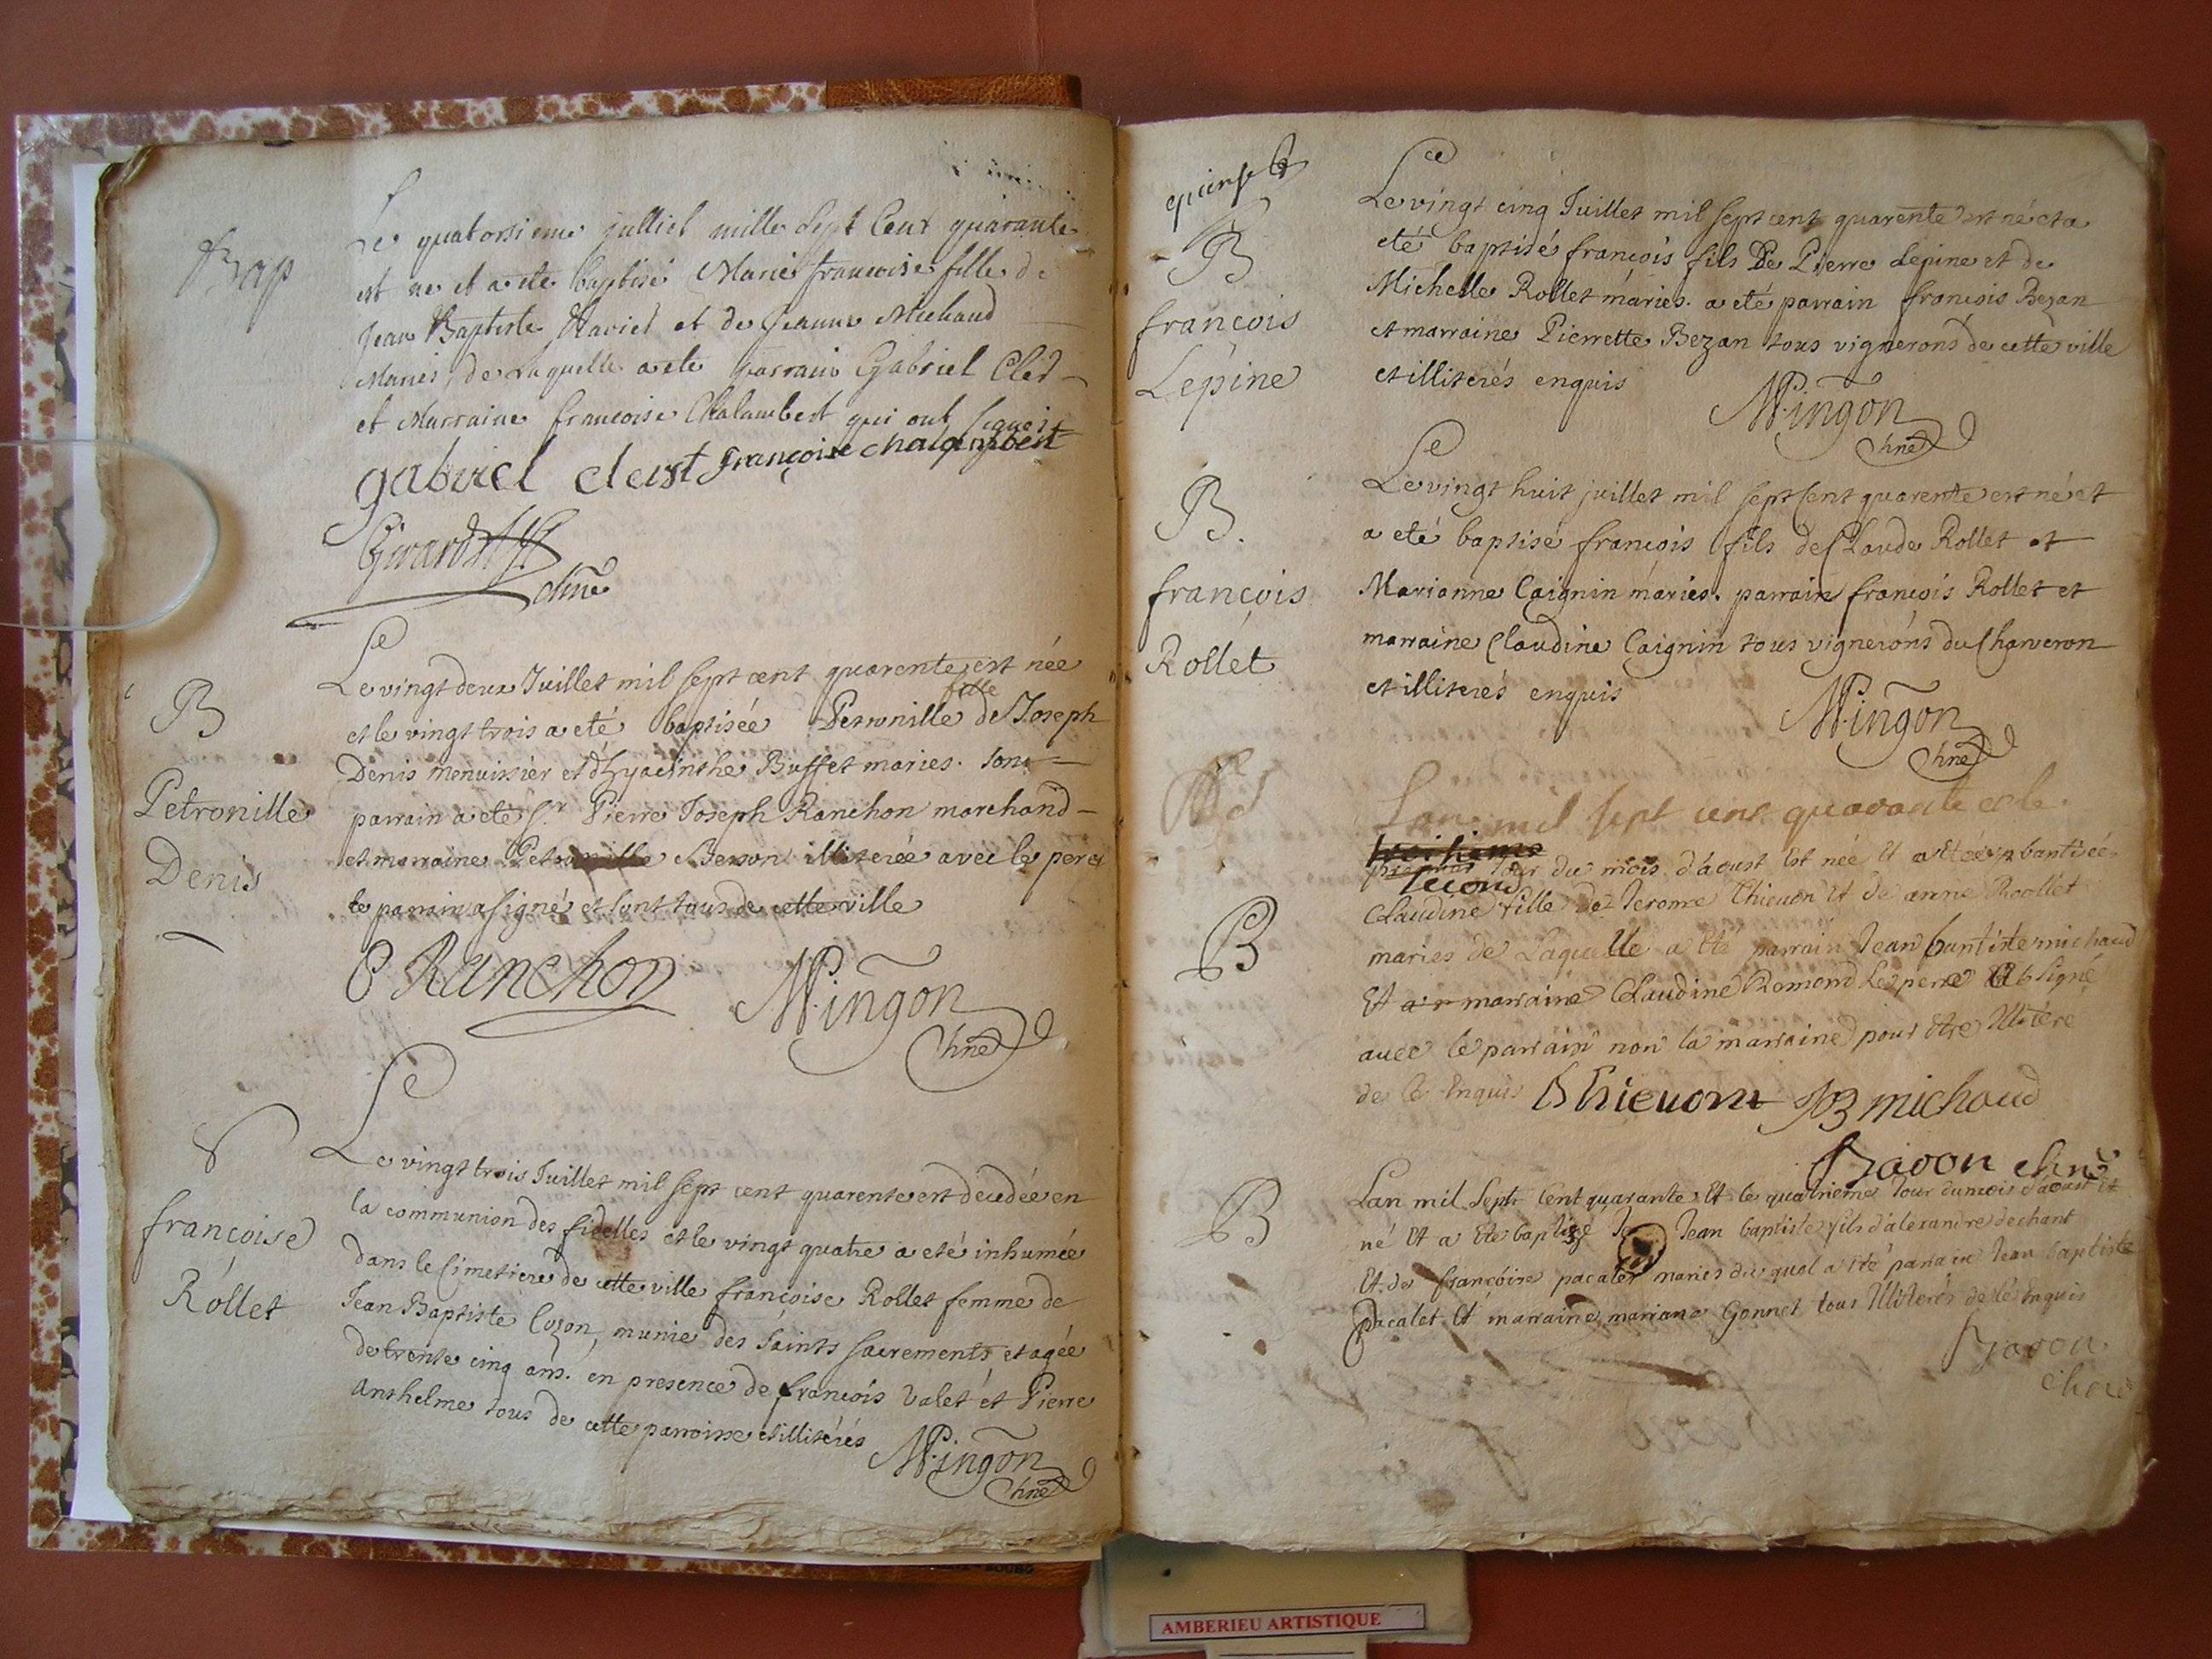 Bap
Le quatorsieme julliet mille Sept Cent quarante
est ne et a ete baptisé Marie francoise fille de
Jean Baptiste et de Jeanne Michaud
Maries, de Laquelle a ete parrain Gabriel Clert
et Marraine francoise Chalambert qui ont signez
gabriel clerst françoise chalambert
Girard
chne
B
Petronille
Denis
Le
Le vingt deux Juillet mil sept cent quarente est née
fille
et le vingt trois a eté baptisée Petronille de Joseph
Denis menuissier et d'hyacinthe Buffet maries. son
parrain a eté Sr. Pierre Joseph Ranchon marchand
et marraine Petronille Berson illiterée avec le pere
le parrain a signé et sont tous de cette ville
P Ranchon
Mingon
chne
françoise
Rollet
Le
Le vingt trois Juillet mil sept cent quarente est decedée en
la communion des fidelles et le vingt quatre a eté inhumée
dans le Cimetiere de cette ville françoise Rollet femme de
Jean Baptiste Cozon, munie des saints sacrements et agée
de trente cinq ans. en presence de françois Valet et Pierre
Anthelme tous de cette parroisse et illiterés
Mingon
chne
B
françois
Lépine
Le
Le vingt cinq Juillet mil sept cent quarente est né et a
eté baptisé françois fils De Pierre Lépine et de
Michelle Rollet maries. a eté parrain françois Bezan
et marraine Pierrette Bezan tous vignerons de cette ville
et illiterés enquis
Mingon
chne
B.
françois
Rollet
Le
Le vingt huit juillet mil sept Cent quarente est né et
a eté baptisé françois fils de Claude Rollet et
Marianne Caignin maries. parrain françois Rollet et
marraine Claudine Caignin tous vignerons du Charveron
et illiterés enquis
Mingon
chne
Lan mil sept cent quarante et le
troisieme
premier Jour du mois d'aoust Est née Et a été baptisée
second
B
Claudine fille de Jerome Thievon Et de anne Roollet
maries de Laquelle a Eté parrain Jean baptiste michaud
Et marraine Claudine Romond Le pere a signé
avec le parrain non la marraine pour être Illitéré
de ce Enquis Thievom JB michaud
Bavon chne
B
Lan mil Sept Cent quarante Et le quatrieme Jour du mois d'aoust Et
né Et a Ete baptisé Jean baptiste fils d'alexandre dechant
Et de françoise pacalet maries du quel a été parrain Jean baptiste
pacalet Et marraine mariane Gonnet tous Illiterés de ce Enquis
Bavon
chne
AMBERIEU ARTISTIQUE